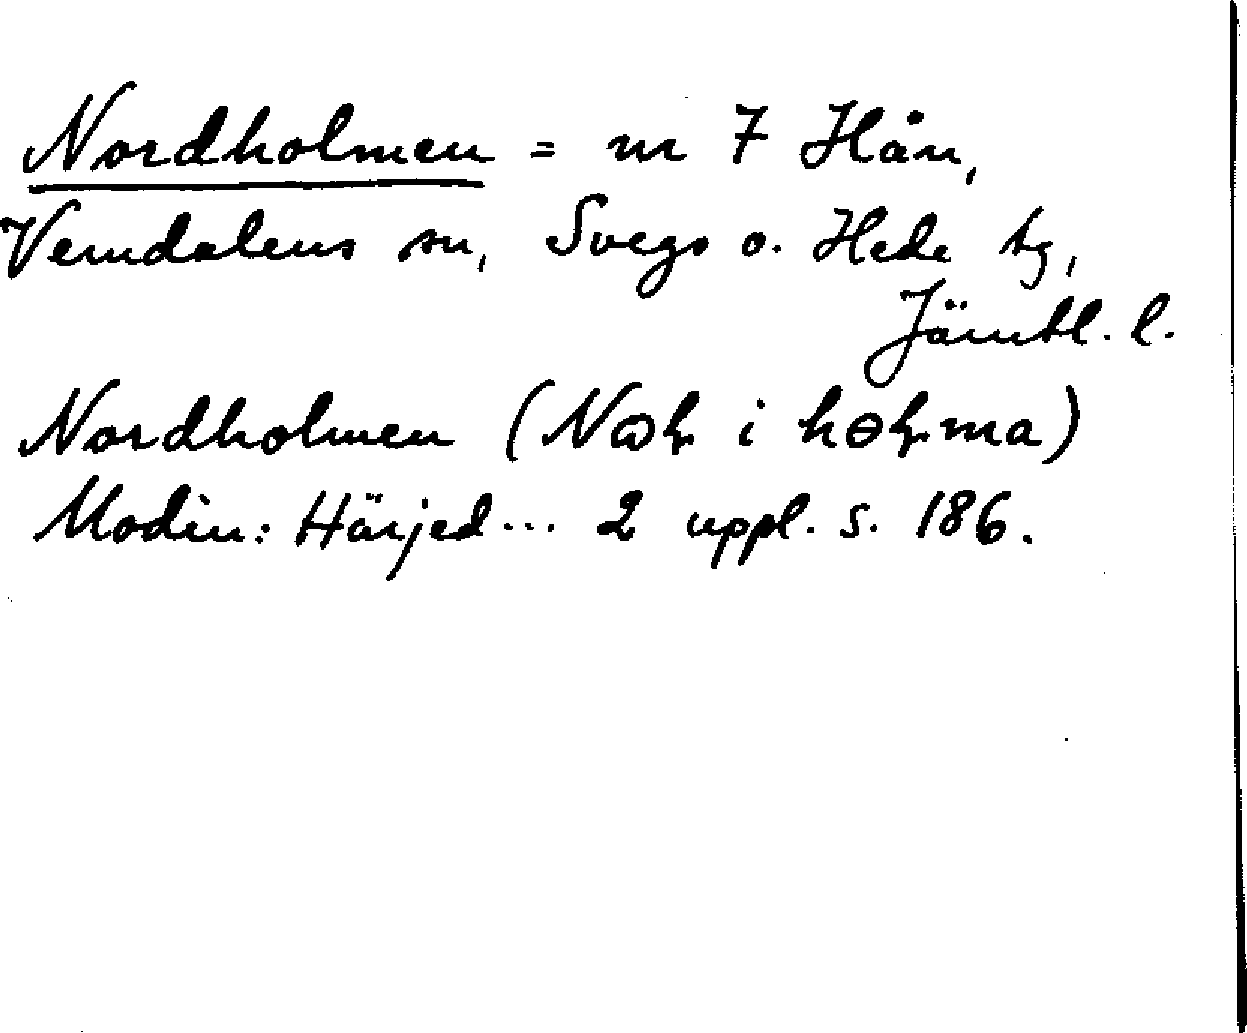 Nordholmen = nr 7 Hån,
Vemdalens sn, Svegs o. Hede tg,
Jämtl. l.
Nordholmen (Nɷɽ i hɵɽma)
Modin: Härjed... 2 uppl. s. 186.